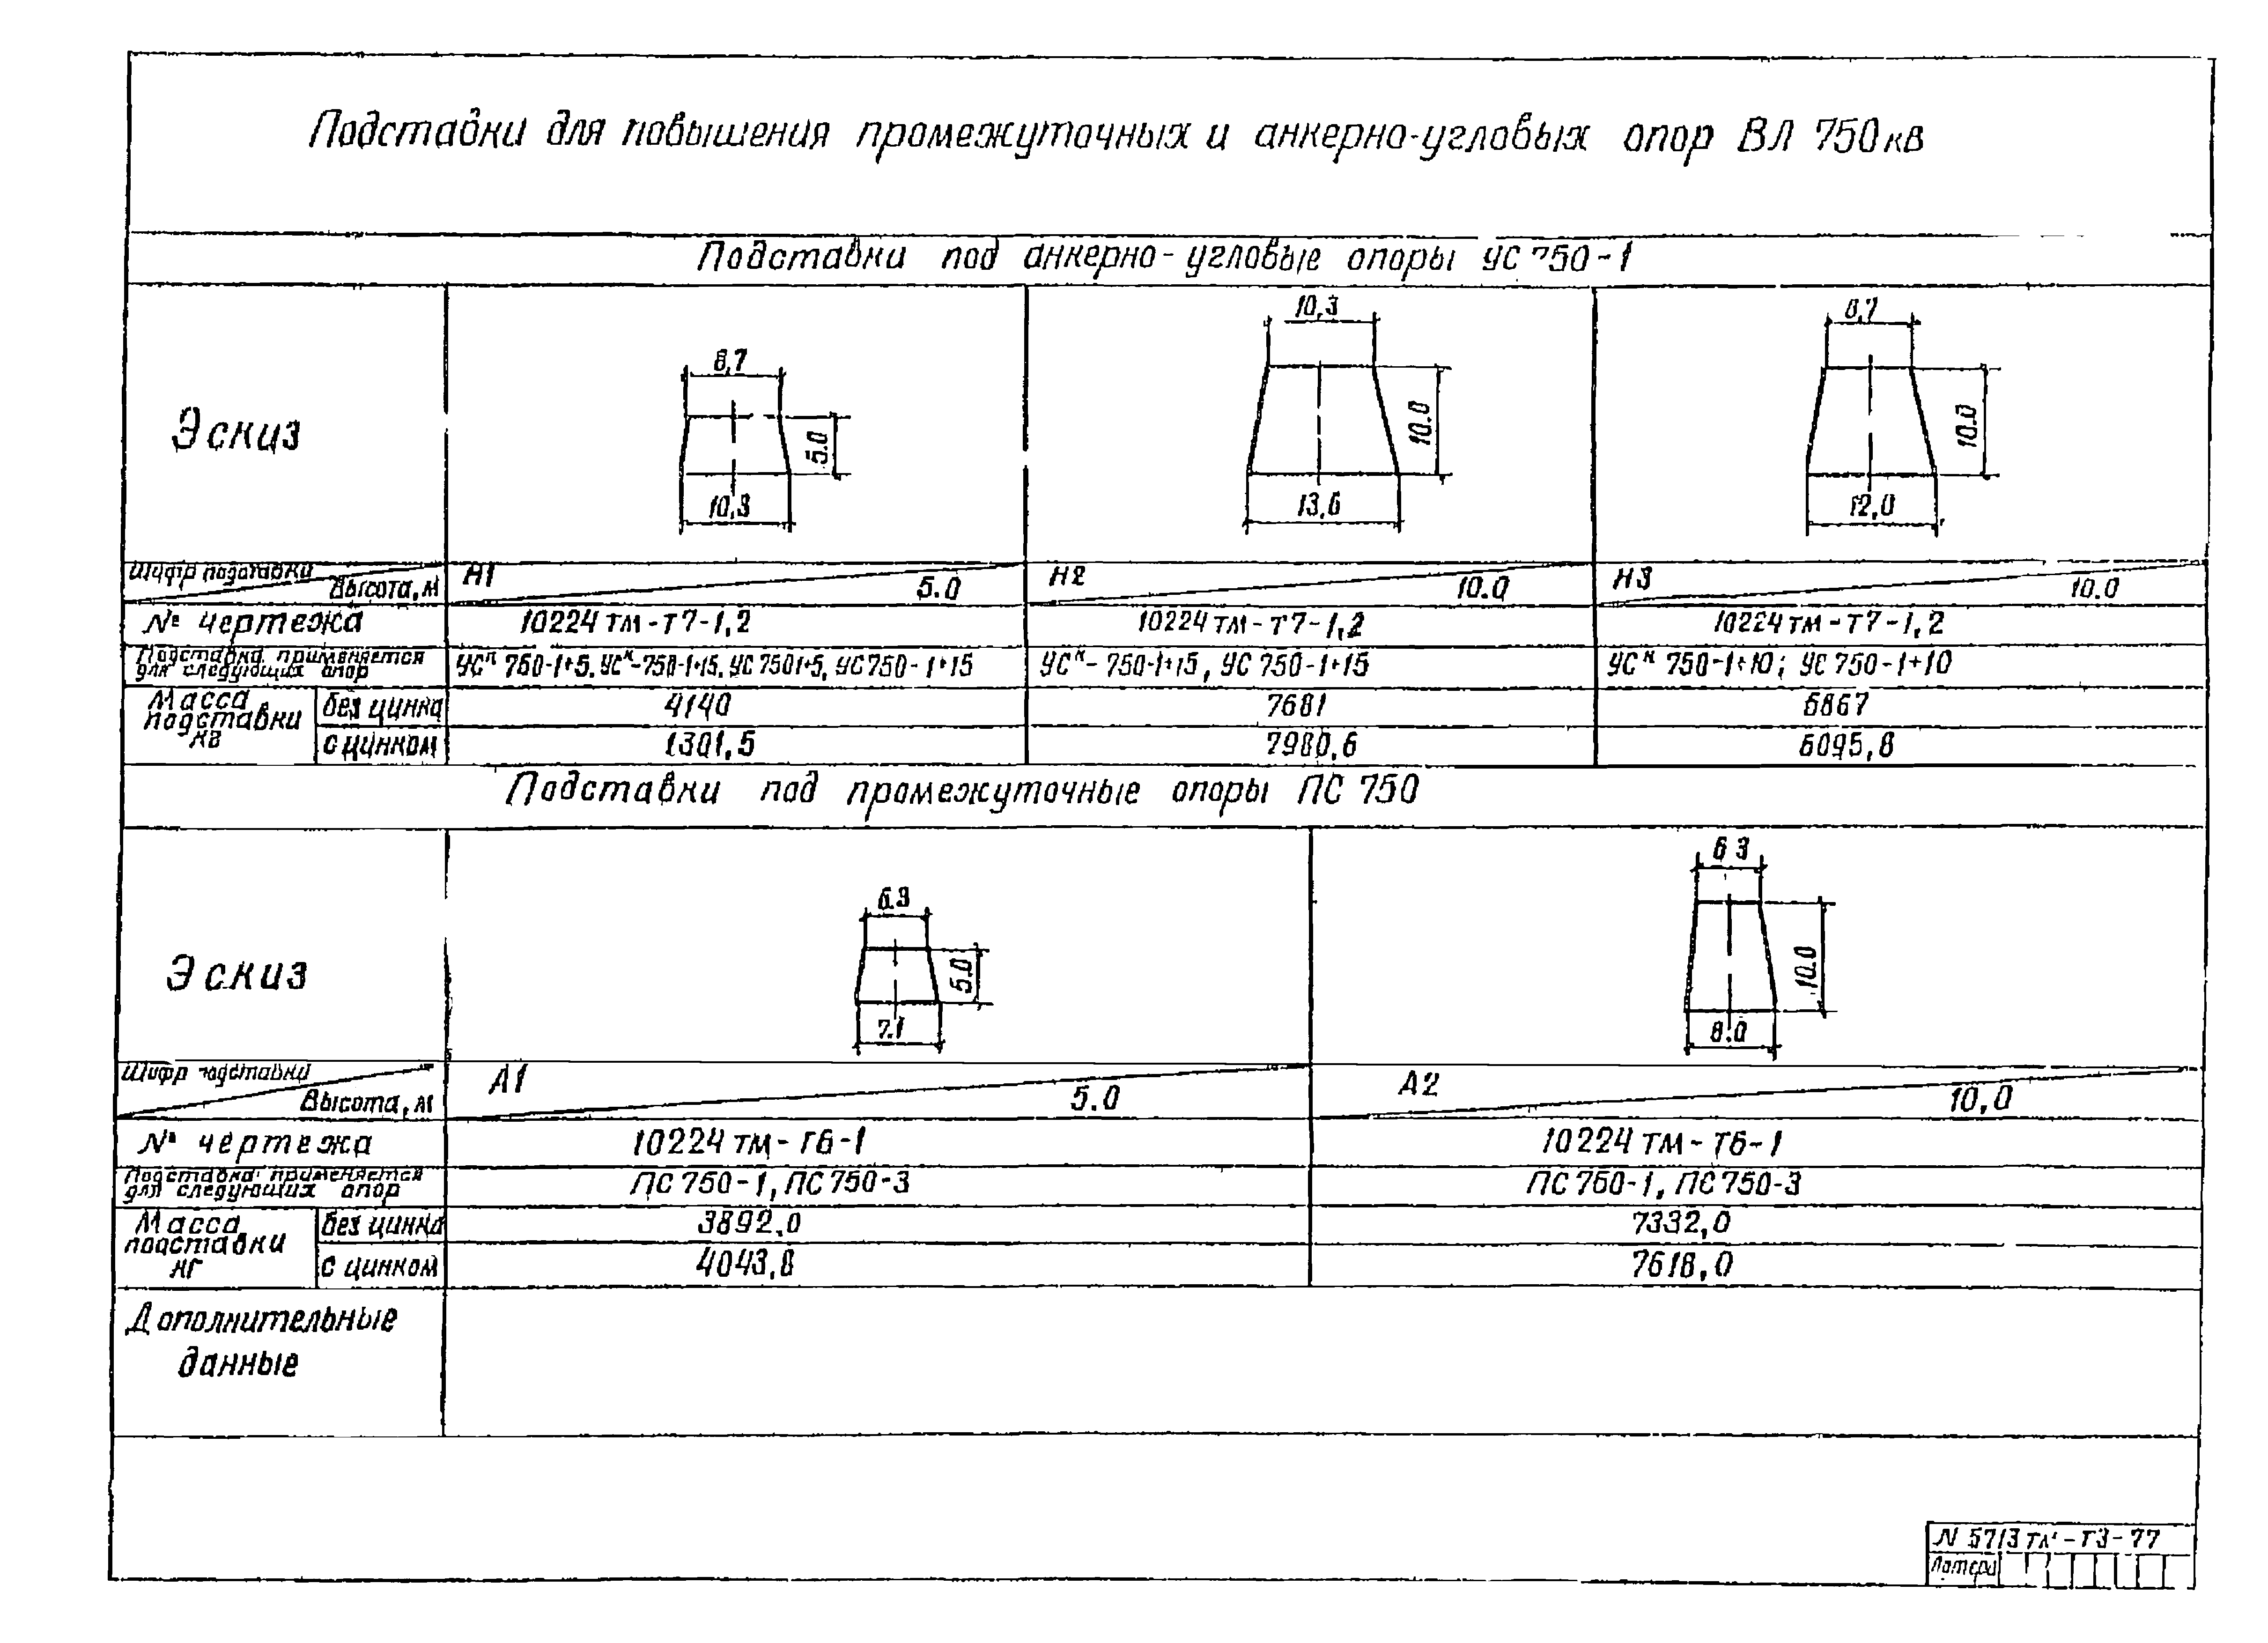 Подставки для повышения промежуточных и анкерно-угловых опор ВЛ 750кв
Подставки под анкерно-угловые опоры УС 750-1
Эскиз
8,7
5.0
10,3
10,3
10.0
13,6
8,7
10.0
12,0
Шифр подставки
Высота, м
Н1 5.0
Н2 10.0
Н3 10.0
№ чертежа 10224 тм-т7-1,2 10224 тм-т7-1,2 10224 тм-т7-1,2
Подставка применяется
для следующих опор
УСк 750-1+5. УСк-750-1+15. УС 750 1+5, УС 750-1+15
УСк-750-1+15, УС 750-1+15
УСк 750-1+10; УС 750-1+10
Масса
подставки
кг
без цинка 4140 7681
с цинком 7980,6 6095,8
Подставки под промежуточные опоры ПС 750
Эскиз
6.3
5.0
7.1
6 3
10.0
8.0
Шифр подставки
Высота, м
А1 5.0
А2 10,0
№ чертежа 10224 тм-т6-1 10224 тм-т6-1
Подставка применяется
для следующих опор
ПС 750-1, ПС 750-3 ПС 750-1, ПС 750-3
Масса
подставки
кг
без цинка 3892,0 7332,0
с цинком 4043,8 7618,0
Дополнительные
данные
N 5713 тм-т3-77
Литера